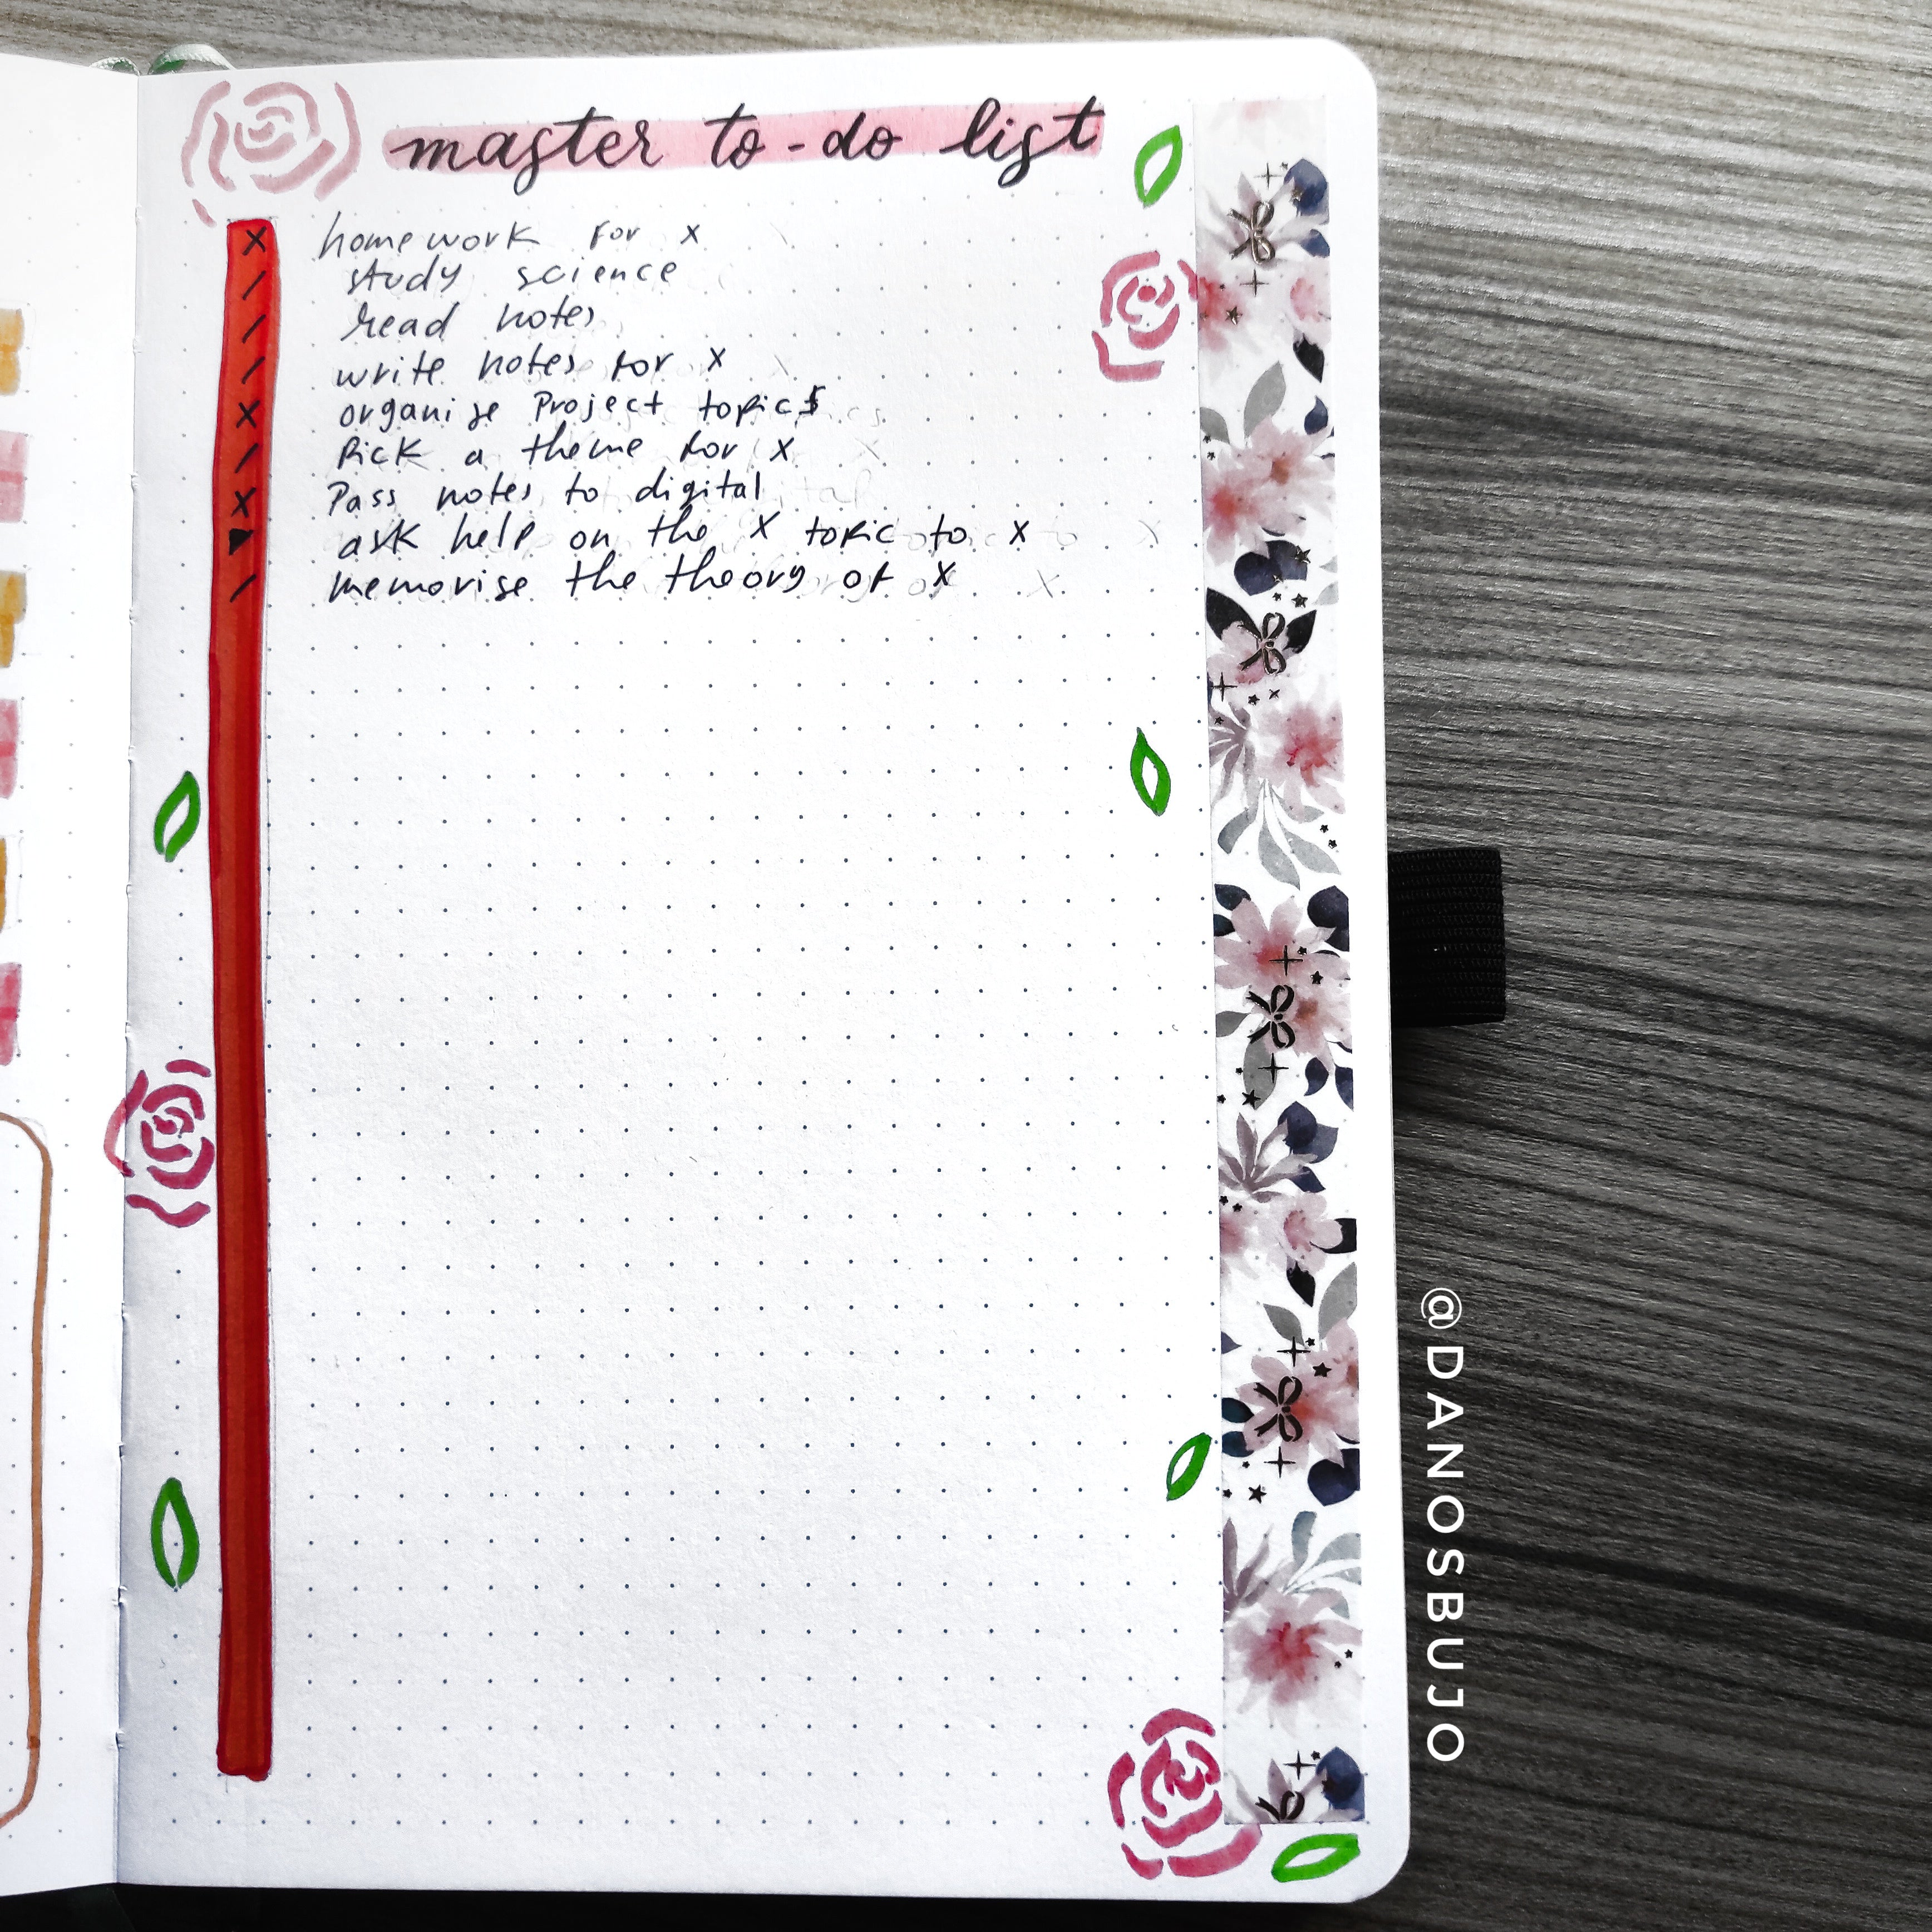 master to-do list
x homework for x
/ study science
/ read notes
/ write notes for x
x organise Project topics
/ Pick a theme for x
x Pass notes to digital
ask help on the x topic to x
/ memorise the theory of x
@DANOSBUJO